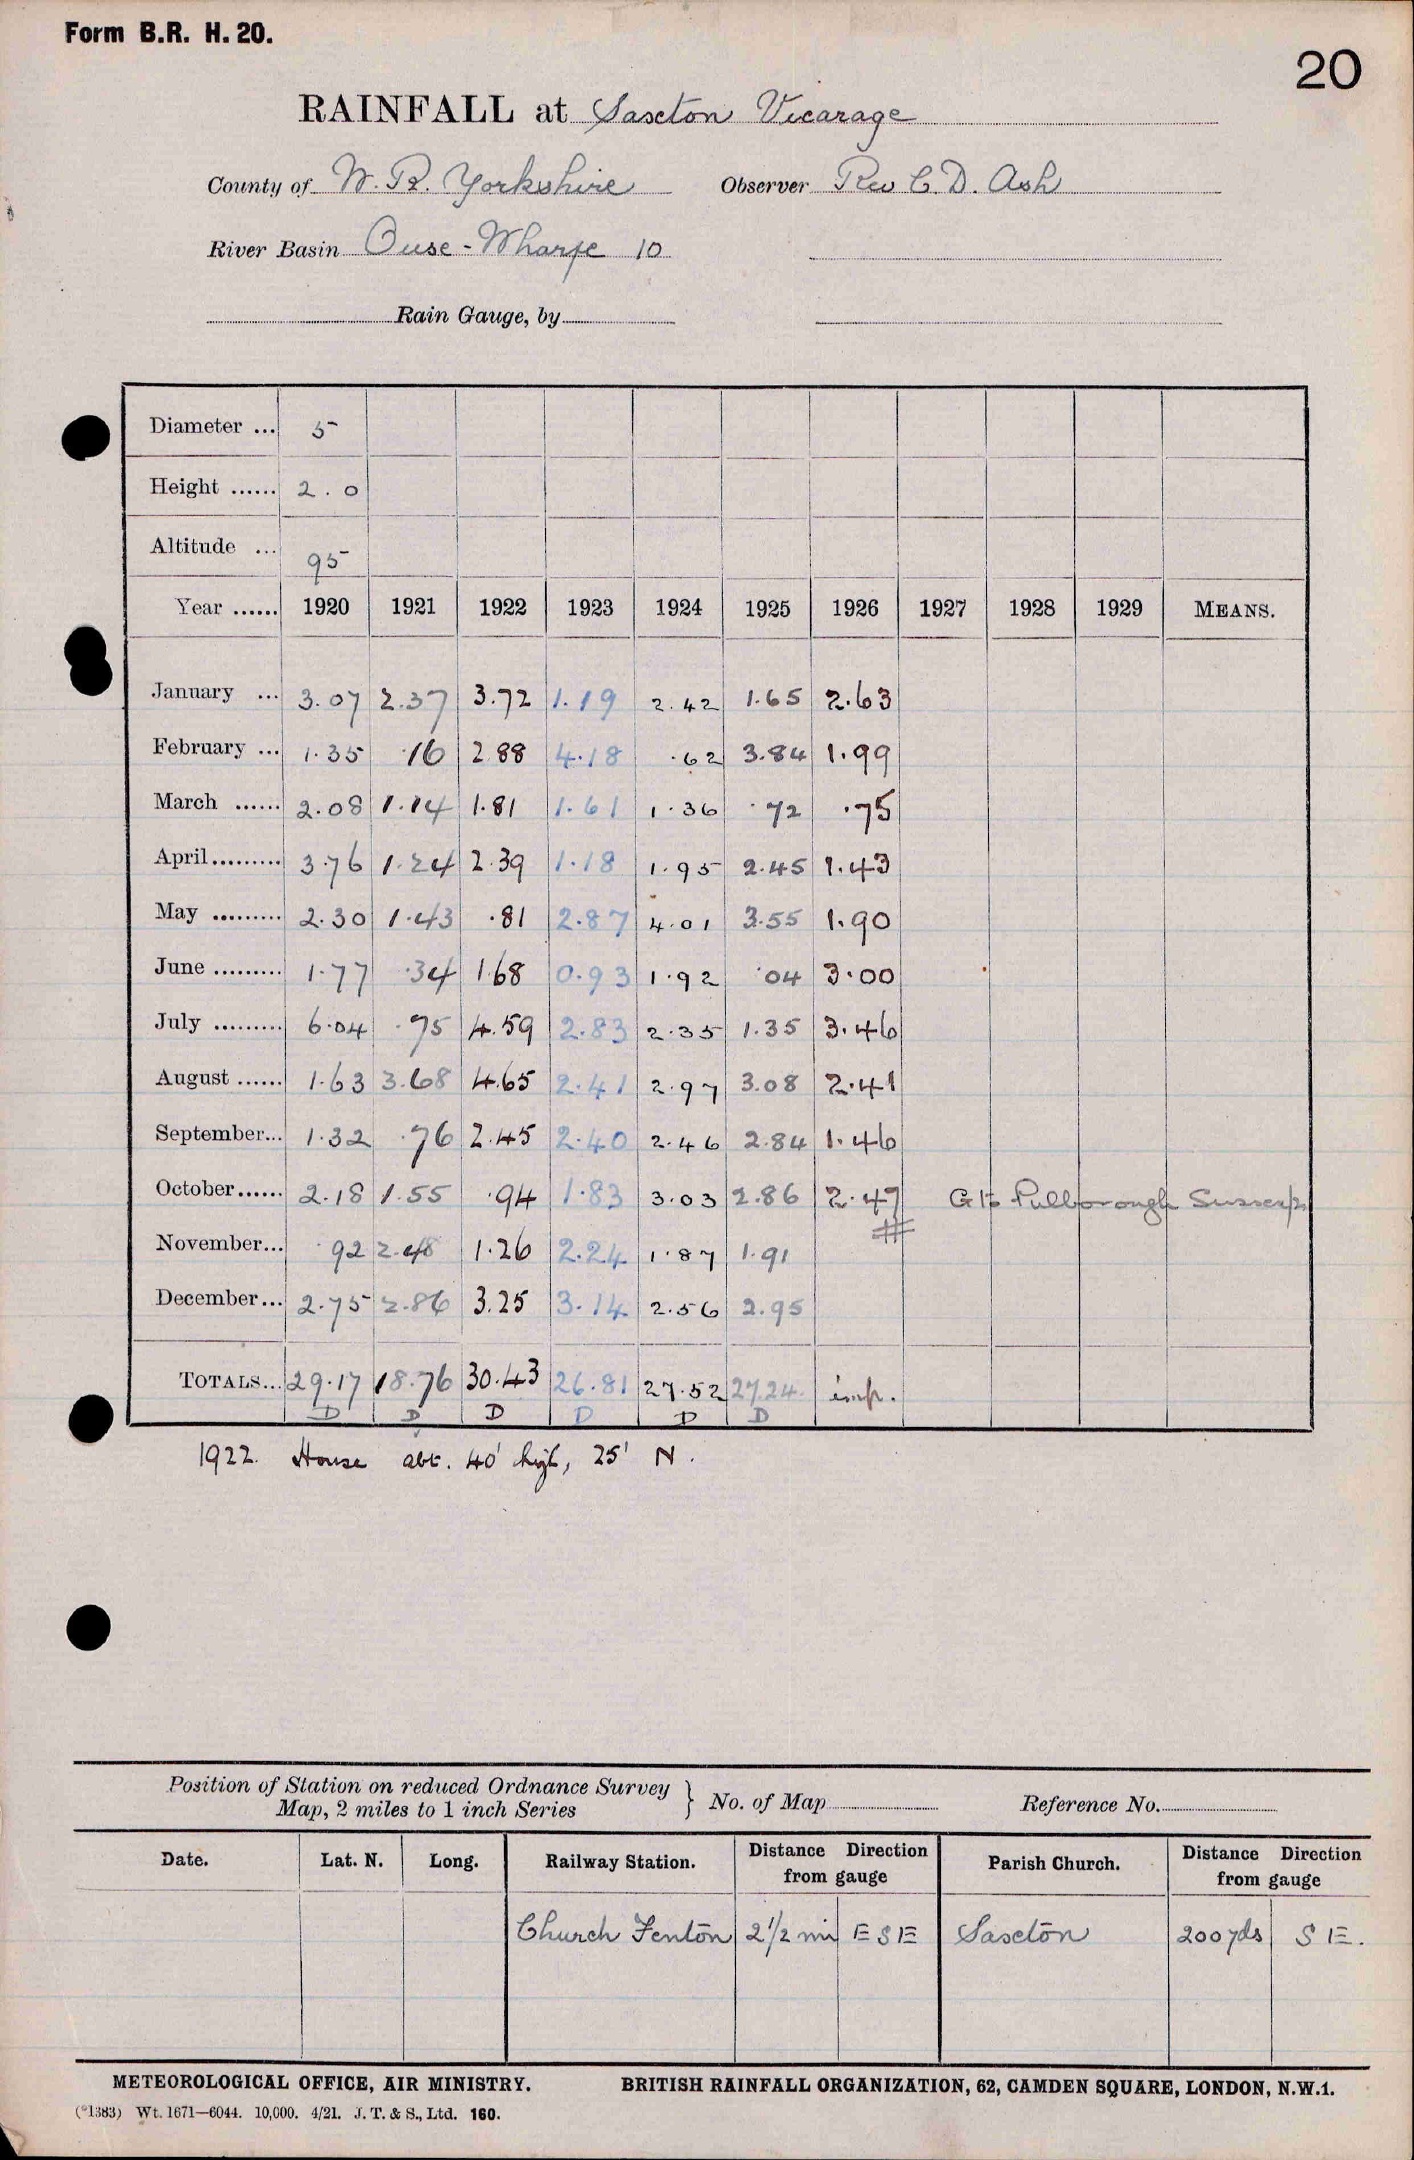 Form B.R. H. 20.
20
RAINFALL at Saxton Vicarage
County of W. R. Yorkshire Observer Rev C. D. Ash
River Basin Ouse - Wharfe 10
Rain Gauge, by
Diameter ... 5
Height ...... 2.0
Altitude ... 95
Year ...... 1920 1921 1922 1923 1924 1925 1926 1927 1928 1929 MEANS.
January ... 3.07 2.37 3.72 1.19 2.42 1.65 2.63
February ... 1.35 .16 2.88 4.18 .62 3.84 1.99
March ...... 2.08 1.14 1.81 1.61 1.36 .72 .75
April ......... 3.76 1.24 2.39 1.18 1.95 2.45 1.43
May ......... 2.30 1.43 .81 2.87 4.01 3.55 1.90
June ......... 1.77 .34 1.68 0.93 1.92 .04 3.00
July ......... 6.04 .75 4.59 2.83 2.35 1.35 3.46
August ...... 1.63 3.68 4.65 2.41 2.97 3.08 2.41
September... 1.32 .76 2.45 2.40 2.46 2.84 1.46
October...... 2.18 1.55 .94 1.83 3.03 2.86 2.47 G to Pulborough Sussex
November... .92 2.48 1.26 2.24 1.87 1.91
December... 2.75 2.86 3.25 3.14 2.56 2.95
TOTALS... 29.17 18.76 30.43 26.81 27.52 27.24 imp.
D D D D D D
1922. House abt. 40' high, 25' N.
Position of Station on reduced Ordnance Survey
Map, 2 miles to 1 inch Series } No. of Map Reference No.
Date. Lat. N. Long. Railway Station. Distance Direction from gauge Parish Church. Distance Direction from gauge
Church Fenton 2 1/2 mi E S E Saxton 200 yds S E.
METEOROLOGICAL OFFICE, AIR MINISTRY. BRITISH RAINFALL ORGANIZATION, 62, CAMDEN SQUARE, LONDON, N.W.1.
(*1383) Wt. 1671—6044. 10,000. 4/21. J. T. & S., Ltd. 160.